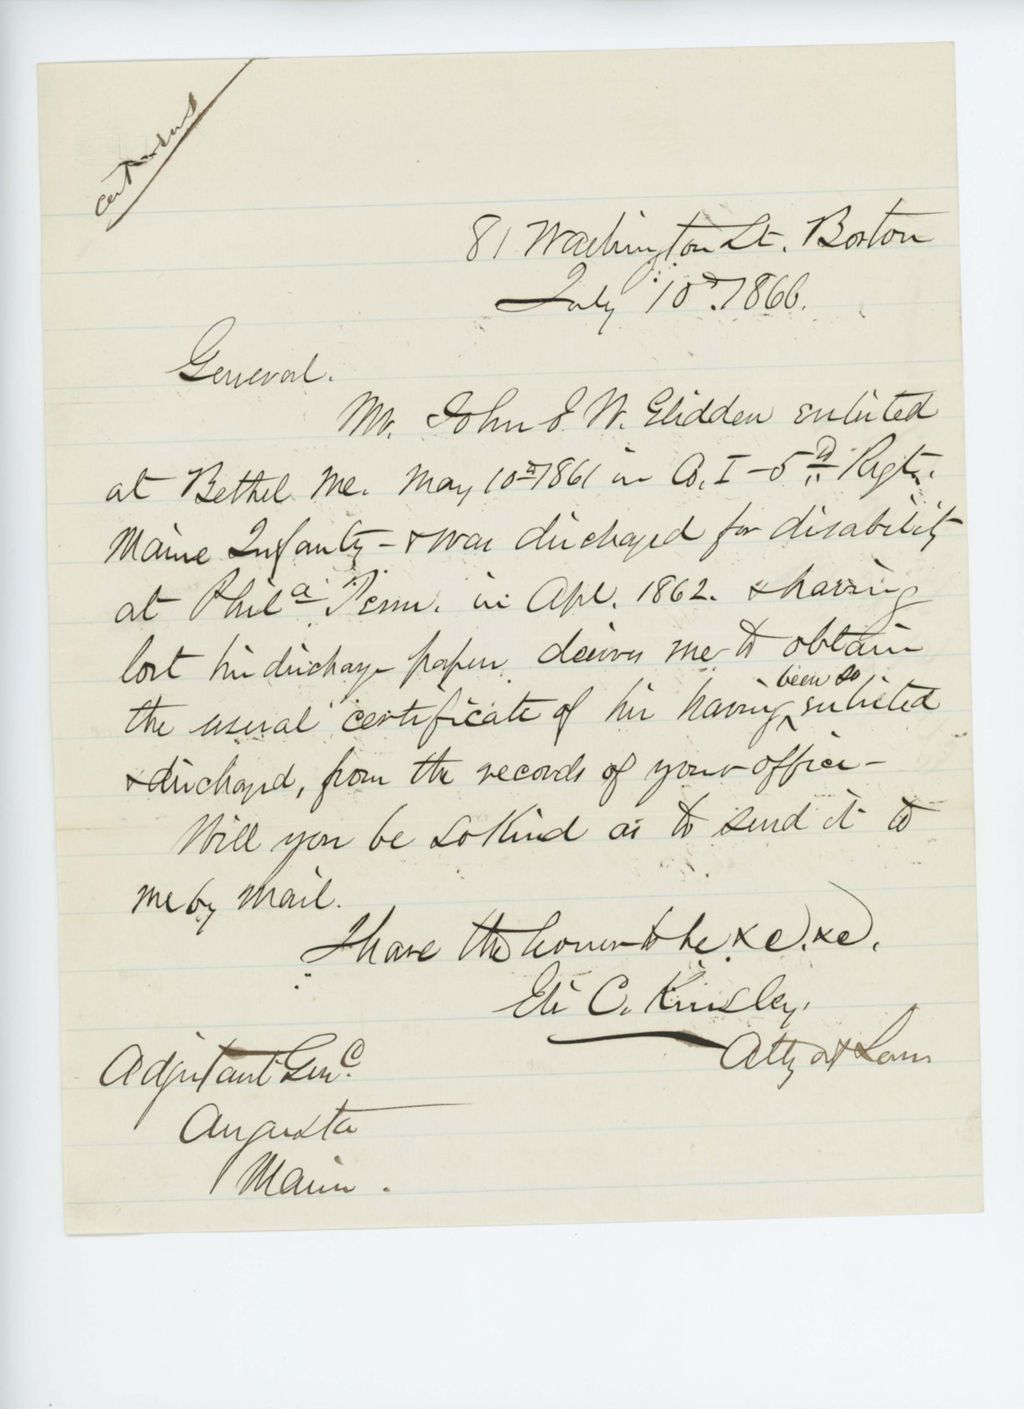 81 Washington St. Boston
July 10th 1866.
General.
Mr. John J. W. Glidden enlisted
at Bethel Me. May 10th 1861 in Co. I - 5th Regt.
Maine Infanty - & was discharged for disability
at Phila Penn. in Apl. 1862. & having
lost his discharge papers, desires me to obtain
the usual certificate of his having been so enlisted
& discharged, from the records of your office -
Will you be so kind as to send it to
me by mail.
I have the honor to be &c. &c.
Eli C. Kinsley.
Atty at Law
Adjutant Genl.
Augusta
Maine.